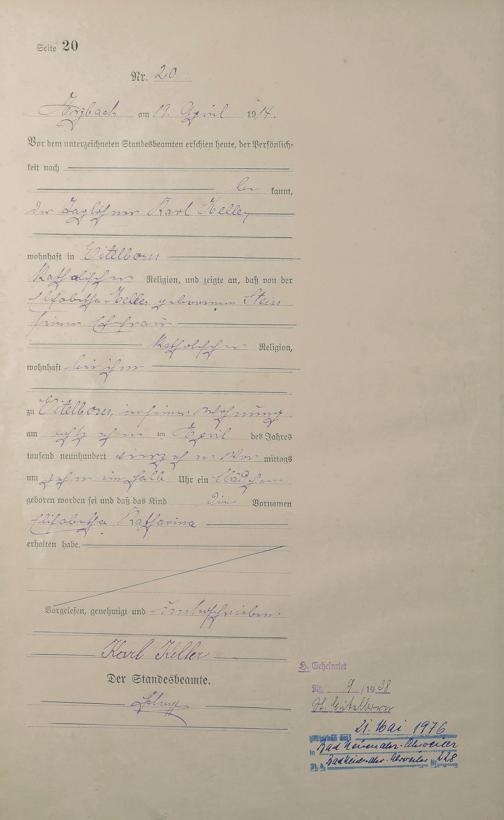 Seite 20
Nr. 20
am 19. April 1914.
Vor dem unterzeichneten Standesbeamten erschien heute, der Persönlich-
keit nach
be kannt,
der Taglöhner Karl Keller
wohnhaft in Eitelborn
katholischer Religion, und zeigte an, daß von der
Elisabetha Keller geborenen Stein
seiner Ehefrau
katholischer Religion,
wohnhaft bei ihm
zu Eitelborn, in seiner Wohnung
am achtzehn ten April des Jahres
tausend neunhundert vierzehn Vor mittags
um zehn einhalb Uhr ein Mädchen
geboren worden sei und daß das Kind die Vornamen
Elisabetha Katharina
erhalten habe.
Vorgelesen, genehmigt und unterschrieben
Karl Keller
Der Standesbeamte.
H. Geheiratet
Nr. 9 / 1938
St. A. Eitelborn
21. Mai 1976
in Bad Neuenahr-Ahrweiler
St. A. Bad Neuenahr-Ahrweiler Nr.